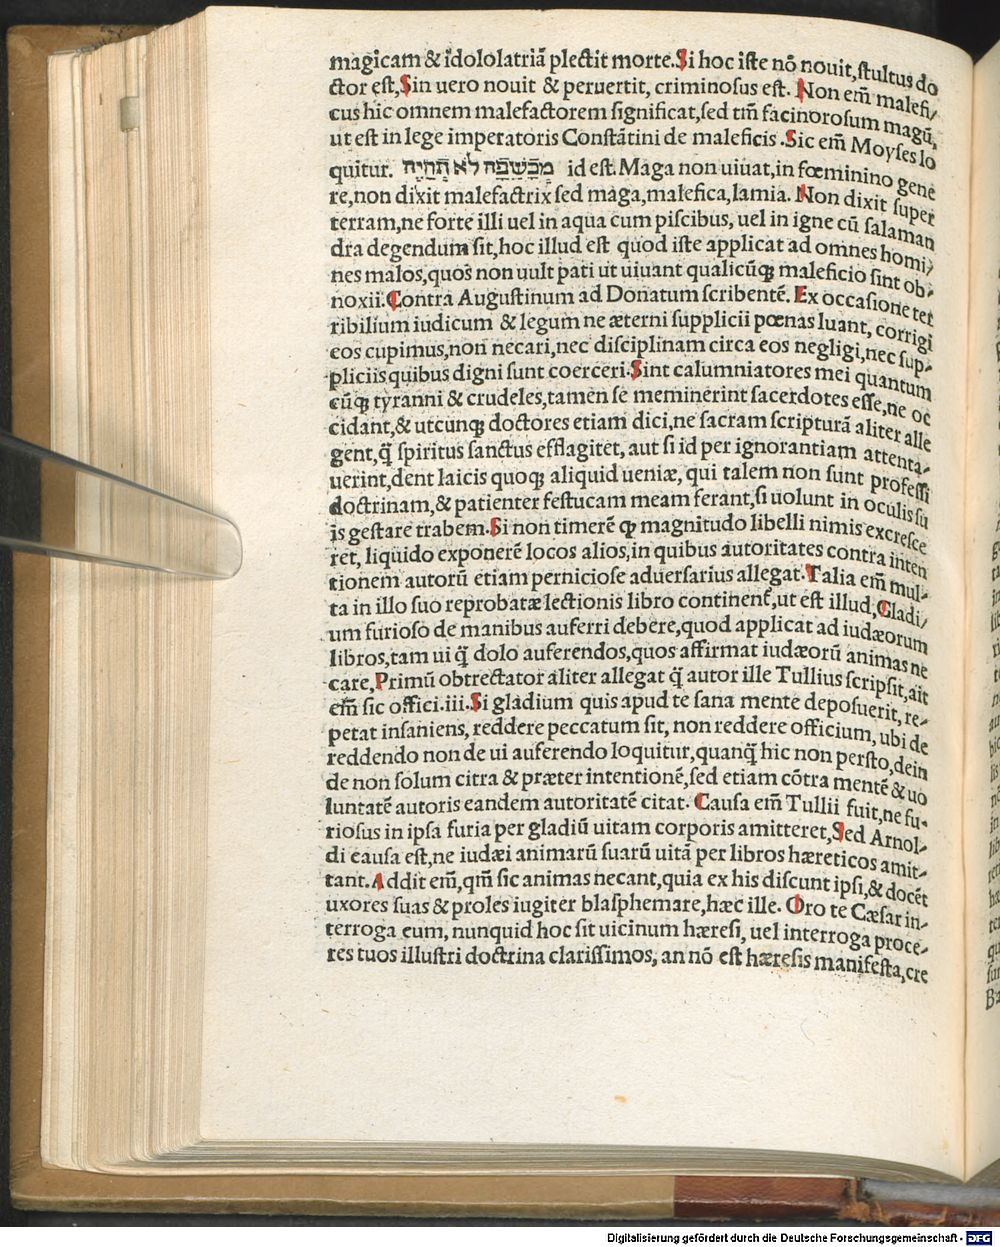 magicam & idololatriā plectit morte. Si hoc iste nō nouit, stultus do
ctor est, Sin uero nouit & peruertit, criminosus est. Non em̄ malefi⸗
cus hic omnem malefactorem significat, sed tm̄ facinorosum magū,
ut est in lege imperatoris Constātini de maleficis . Sic em̄ Moyses lo
quitur. מְכַשֵּׁפָה לֹא תְחַיֶּה id est. Maga non uiuat, in fœminino gene
re, non dixit malefactrix sed maga, malefica, lamia. Non dixit super
terram, ne forte illi uel in aqua cum piscibus, uel in igne cū salaman
dra degendum sit, hoc illud est quod iste applicat ad omnes homi⸗
nes malos, quos non uult pati ut uiuant qualicūqꝫ maleficio sint ob⸗
noxii. Contra Augustinum ad Donatum scribentē. Ex occasione ter
ribilium iudicum & legum ne æterni supplicii pœnas luant, corrigi
eos cupimus, non necari, nec disciplinam circa eos negligi, nec sup⸗
pliciis quibus digni sunt coerceri. Sint calumniatores mei quantum
cūqꝫ tyranni & crudeles, tamen se meminerint sacerdotes esse, ne oc
cidant, & utcunqꝫ doctores etiam dici, ne sacram scripturā aliter alle
gent, q̄ spiritus sanctus efflagitet, aut si id per ignorantiam attenta⸗
uerint, dent laicis quoqꝫ aliquid ueniæ, qui talem non sunt professi
doctrinam, & patienter festucam meam ferant, si uolunt in oculis su
is gestare trabem. Si non timerē qꝫ magnitudo libelli nimis excresce
ret, liquido exponerē locos alios, in quibus autoritates contra inten
tionem autorū etiam perniciose aduersarius allegat. Talia em̄ mul⸗
ta in illo suo reprobatæ lectionis libro continent᷑, ut est illud, Gladi⸗
um furioso de manibus auferri debere, quod applicat ad iudæorum
libros, tam ui q̄ dolo auferendos, quos affirmat iudæorū animas ne
care, Primū obtrectator aliter allegat q̄ autor ille Tullius scripsit, ait
em̄ sic offici. iii. Si gladium quis apud te sana mente deposuerit, re⸗
petat insaniens, reddere peccatum sit, non reddere officium, ubi de
reddendo non de ui auferendo loquitur, quanq̄ hic non persto, dein
de non solum citra & præter intentionē, sed etiam cōtra mentē & uo
luntatē autoris eandem autoritatē citat. Causa em̄ Tullii fuit, ne fu⸗
riosus in ipsa furia per gladiū uitam corporis amitteret, Sed Arnol⸗
di causa est, ne iudæi animarū suarū uitā per libros hæreticos amit⸗
tant. Addit em̄, qm̄ sic animas necant, quia ex his discunt ipsi, & docēt
uxores suas & proles iugiter blasphemare, hæc ille. Oro te Cæsar in⸗
terroga eum, nunquid hoc sit uicinum hæresi, uel interroga proce⸗
res tuos illustri doctrina clarissimos, an nō est hæresis manifesta, cre
Digitalisierung gefördert durch die Deutsche Forschungsgemeinschaft - DFG